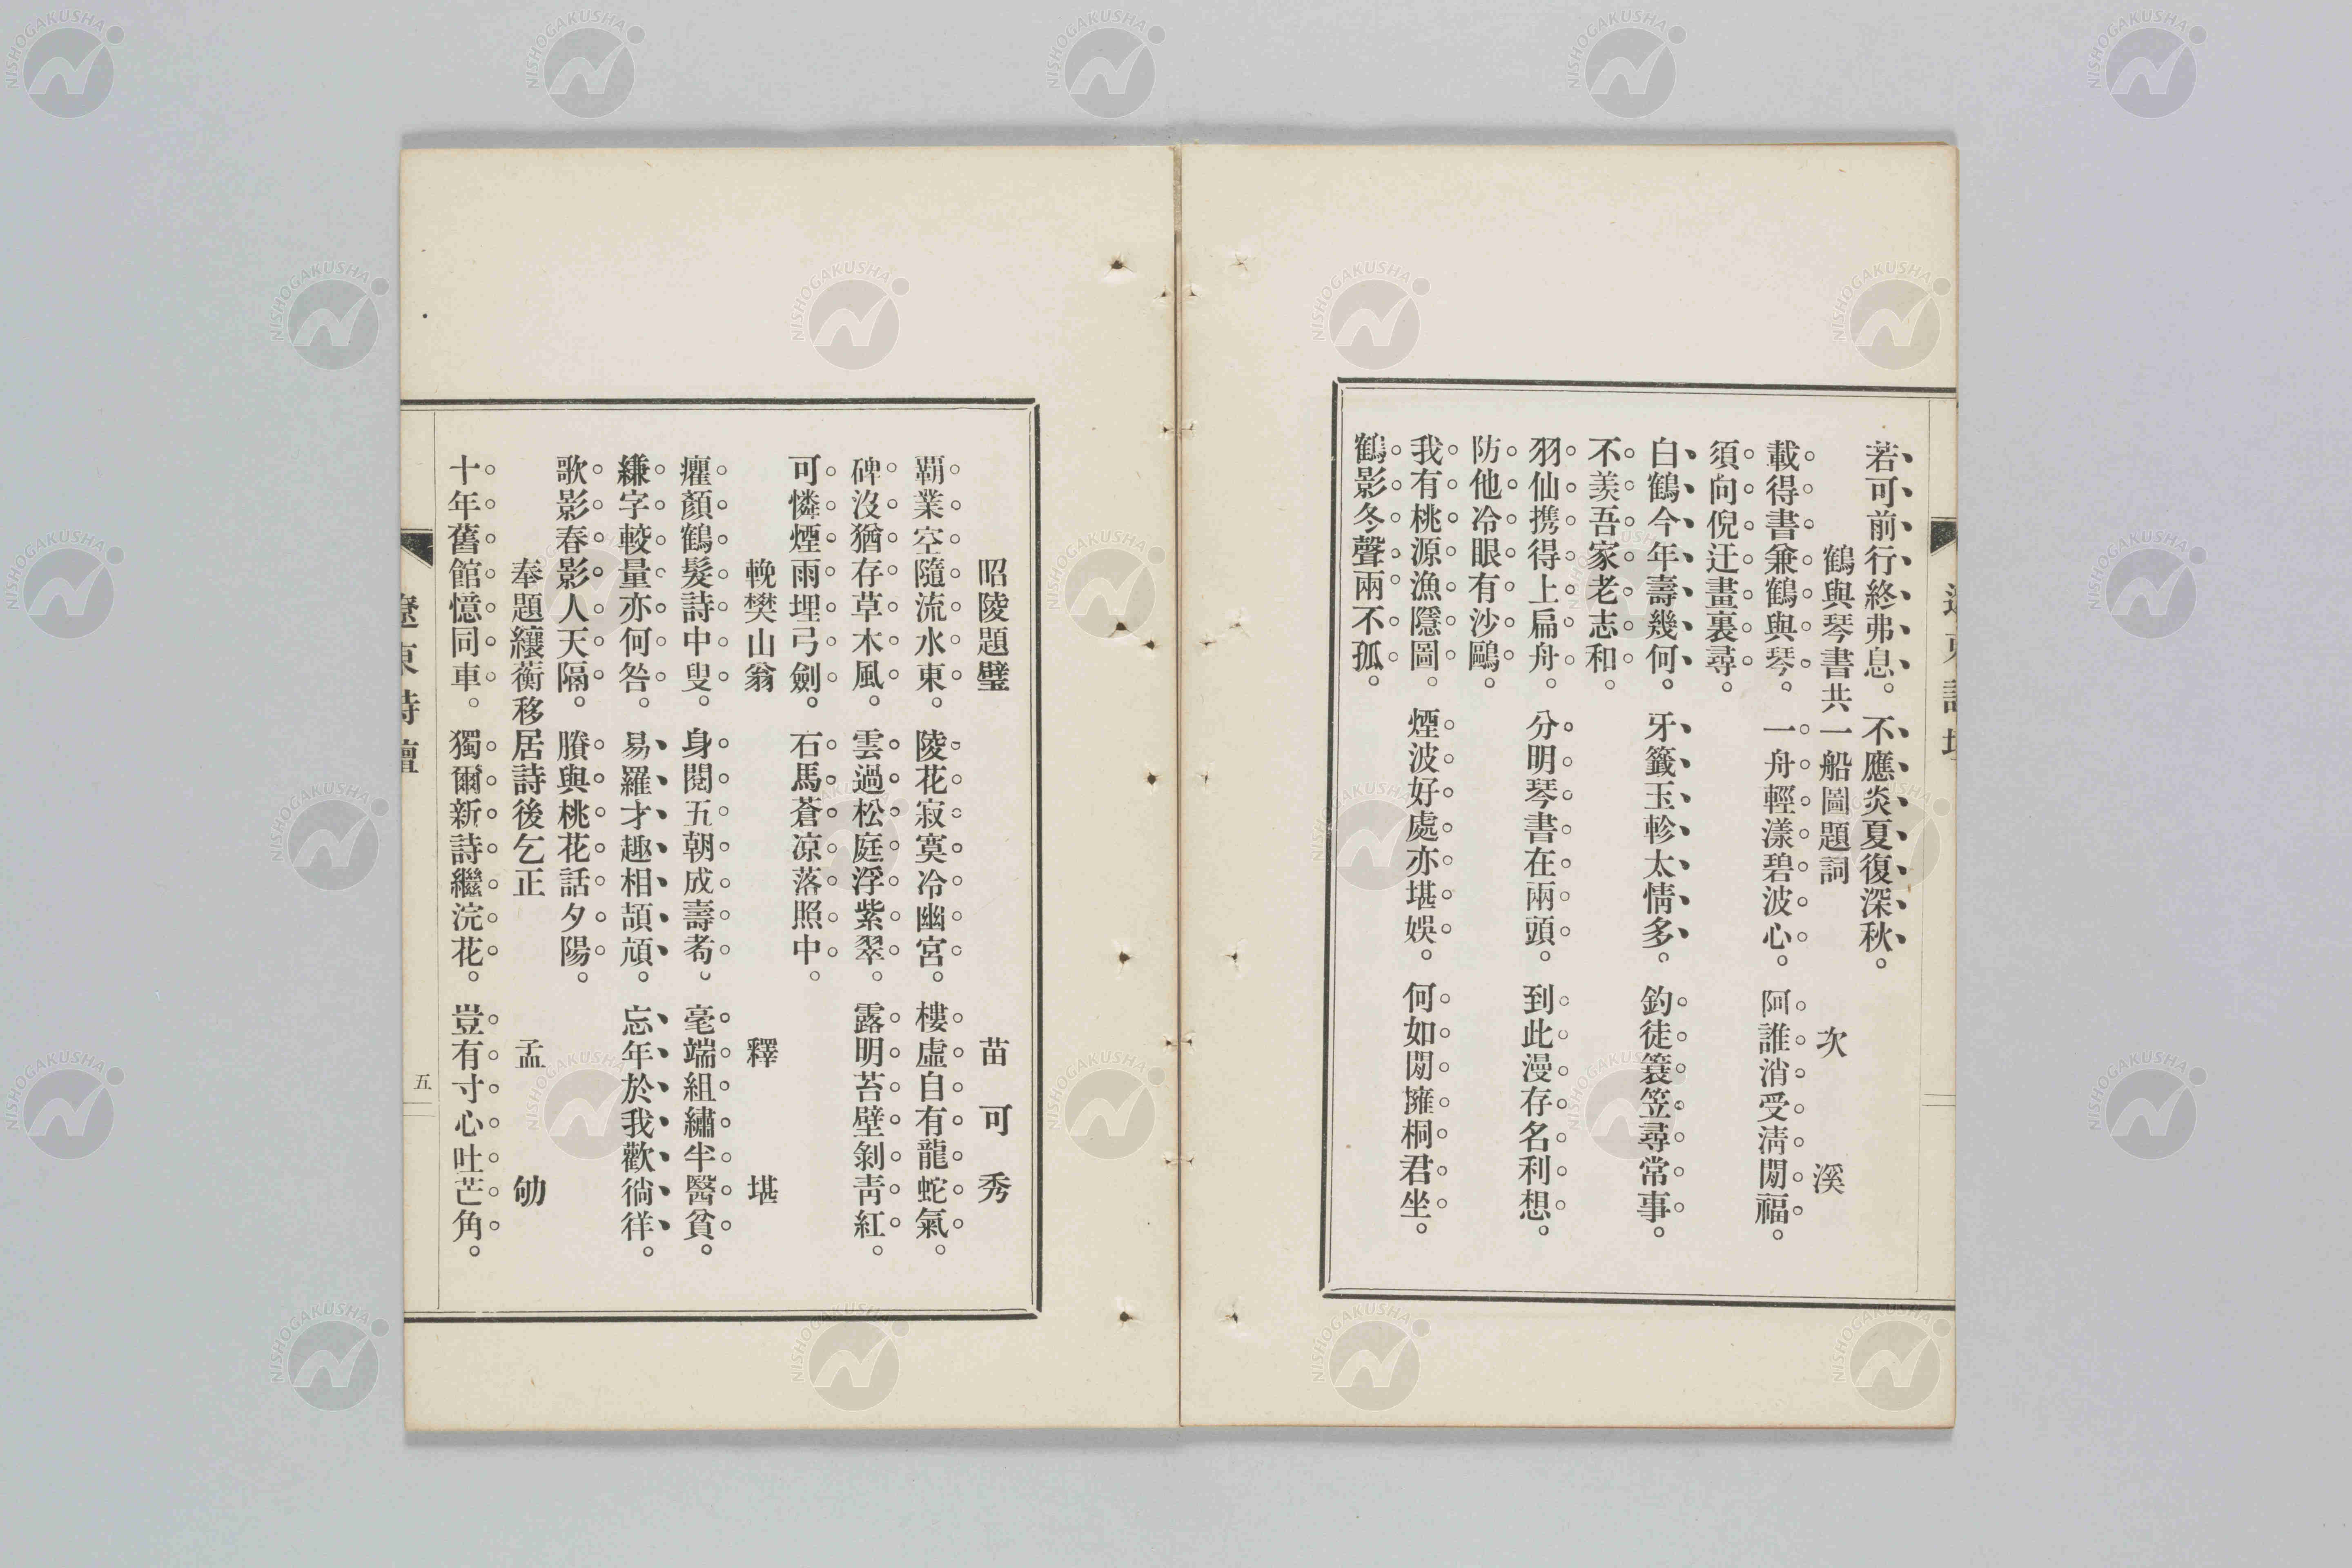 若可前行終弗息。不應炎夏復深秋。
鶴與琴書共一船圖題詞　次溪
載得書兼鶴與琴。一舟輕漾碧波心。阿誰消受淸閒福。
須向倪迂畫裏尋。
白鶴今年壽幾何。牙籤玉軫太情多。釣徒簑笠尋常事。
不羨吾家老志和。
羽仙携得上扁舟。分明琴書在兩頭。到此漫存名利想。
防他冷眼有沙鷗。
我有桃源漁隱圖。煙波好處亦堪娛。何如閒擁桐君坐。
鶴影冬聲兩不孤。
昭陵題璧　苗可秀
覇業空隨流水東。陵花寂寞冷幽宮。樓虛自有龍蛇氣。
碑沒猶存草木風。雲過松庭浮紫翠。露明苔壁剝靑紅。
可憐煙雨埋弓劍。石馬蒼凉落照中。
輓樊山翁　釋堪
癯顏鶴髮詩中叟。身閱五朝成壽耇。毫端組繡半醫貧。
縑字較量亦何咎。易羅才趣相頡頏。忘年於我歡徜徉。
歌影春影人天隔。賸與桃花話夕陽。
奉題纕蘅移居詩後乞正　孟劬
十年舊館憶同車。獨爾新詩繼浣花。豈有寸心吐芒角。
遼東詩壇
五
NISHOGAKUSHA